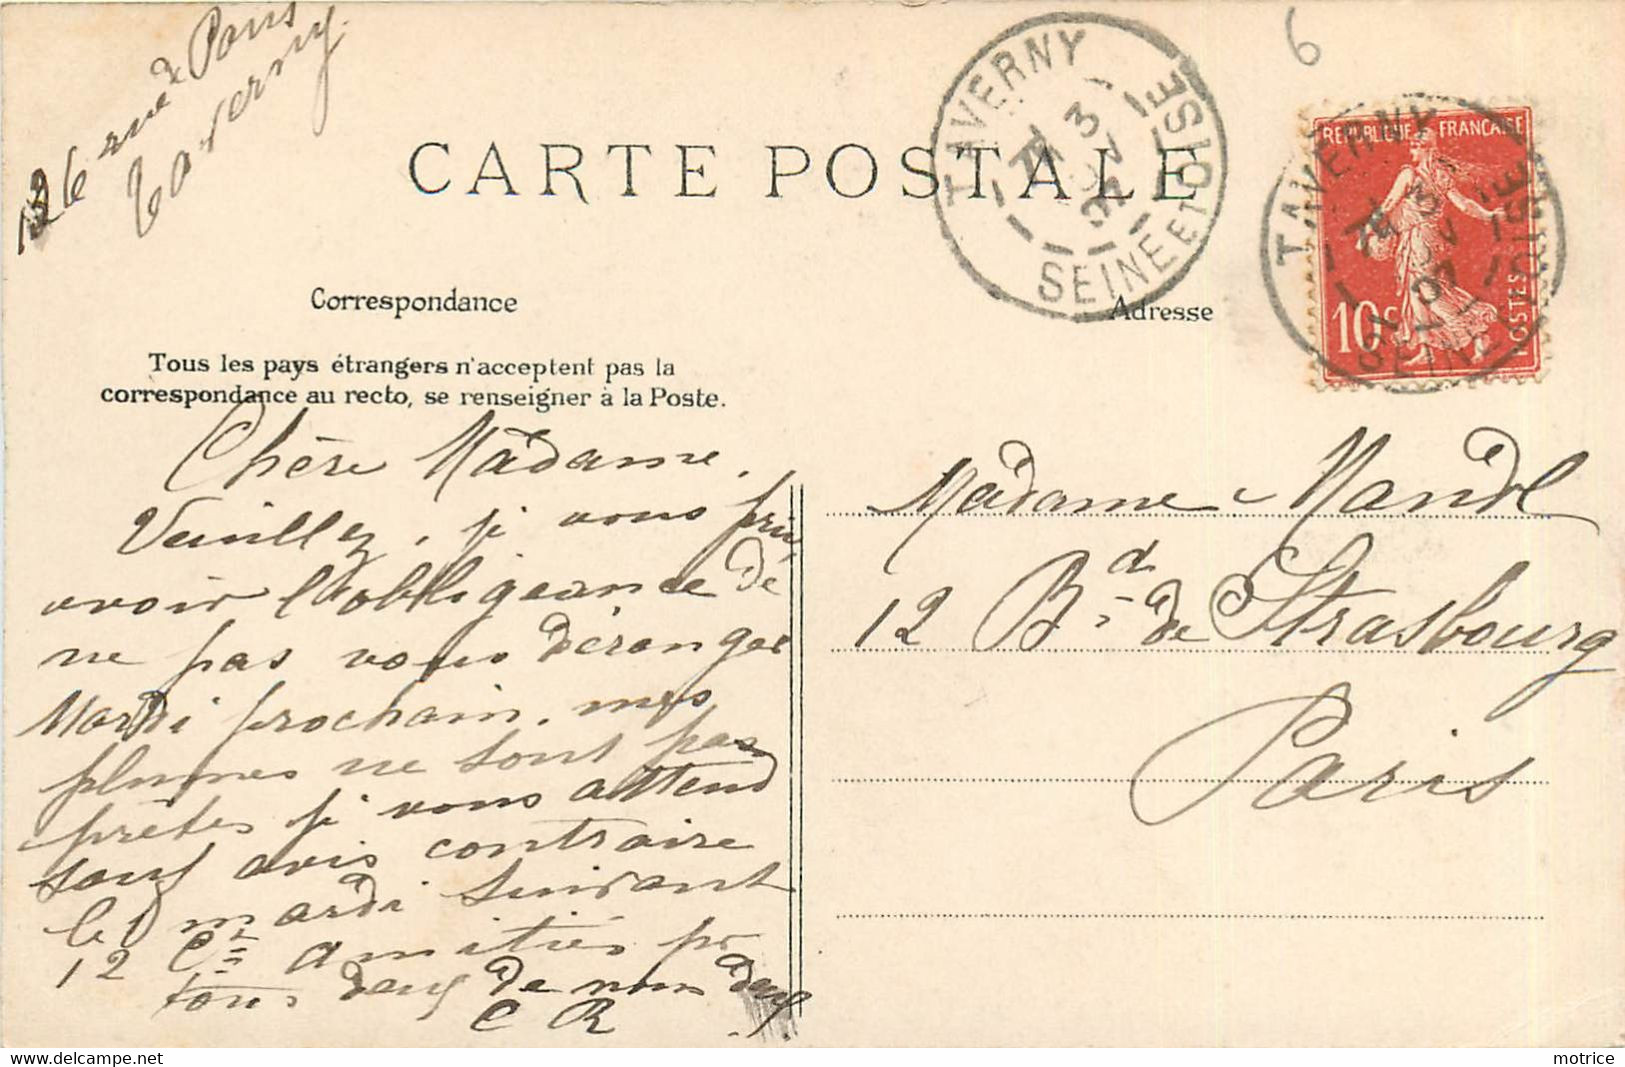 126 rue de Paris
Taverny
CARTE POSTALE
TAVERNY
3
07
SEINE ET OISE
6
REPUBLIQUE FRANÇAISE
10c
POSTES
TAVERNY
SEINE ET OISE
Correspondance
Adresse
Tous les pays étrangers n'acceptent pas la
correspondance au recto, se renseigner à la Poste.
Chère Madame,
Veuillez, je vous prie,
avoir l'obligeance de
ne pas vous déranger
Mardi prochain, mes
plumes ne sont pas
prêtes je vous attend
sauf avis contraire
le mardi suivant
12 Ct amitiés pr
tous deux de nous deux
C R
Madame Mandl
12 Bd de Strasbourg
Paris
motrice